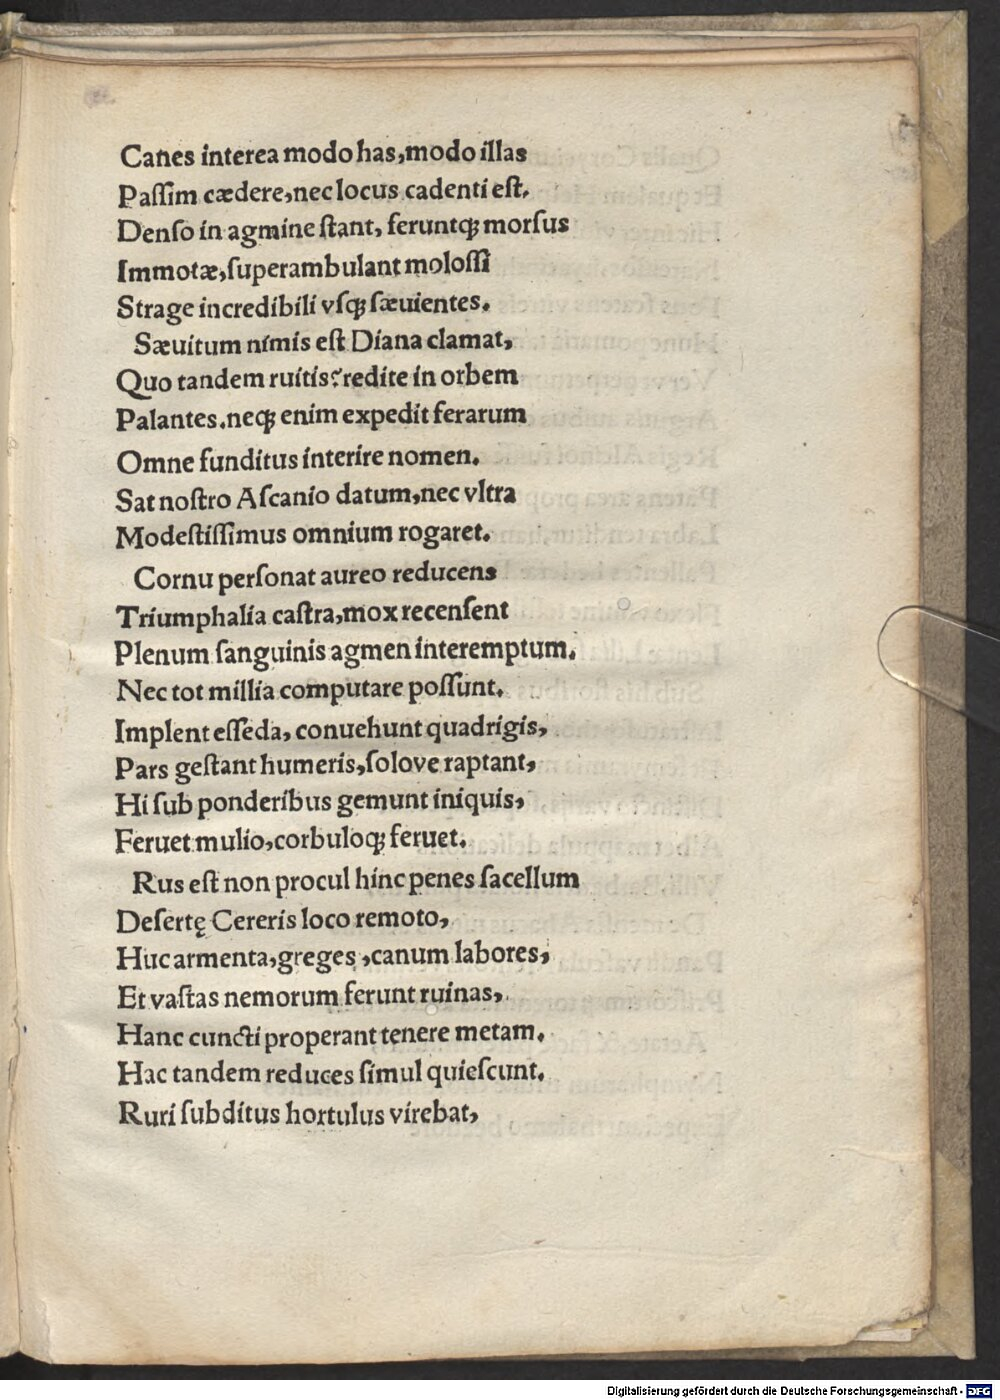 Canes interea modo has,modo illas
Paſſim cædere,nec locus cadenti eſt.
Denſo in agmine ſtant, feruntqꝫ morſus
Immotæ,ſuperambulant moloſſi
Strage incredibili vſqꝫ ſæuientes.
Sæuitum nimis eſt Diana clamat,
Quo tandem ruitis?redite in orbem
Palantes.neqꝫ enim expedit ferarum
Omne funditus interire nomen.
Sat noſtro Aſcanio datum,nec vltra
Modeſtiſſimus omnium rogaret.
Cornu perſonat aureo reducens
Triumphalia caſtra,mox recenſent
Plenum ſanguinis agmen interemptum.
Nec tot millia computare poſſunt.
Implent eſſeda, conuehunt quadrigis,
Pars geſtant humeris,ſolove raptant,
Hi ſub ponderibus gemunt iniquis,
Feruet mulio,corbuloqꝫ feruet.
Rus eſt non procul hinc penes ſacellum
Deſertę Cereris loco remoto,
Huc armenta,greges ,canum labores,
Et vaſtas nemorum ferunt ruinas,
Hanc cuncti properant tenere metam.
Hac tandem reduces ſimul quieſcunt.
Ruri ſubditus hortulus virebat,
Digitalisierung gefördert durch die Deutsche Forschungsgemeinschaft - DFG